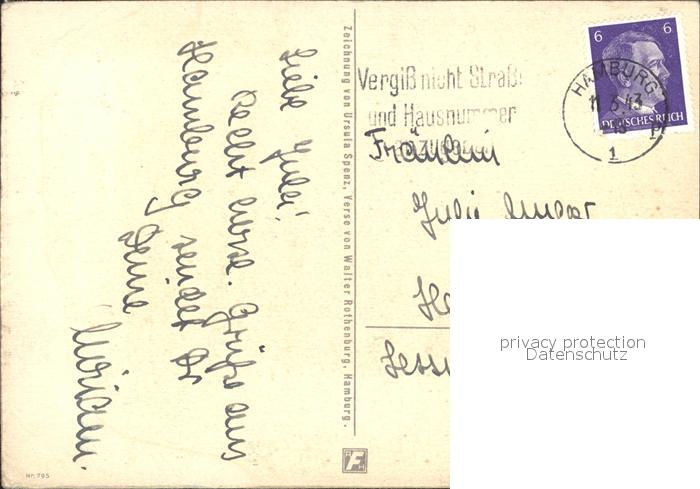 Liebe Juli!
Recht herzl. Grüße aus
Hamburg sendet Dir
Deine
Miriam.
Zeichnung von Ursula Spenz, Verse von Walter Rothenburg, Hamburg.
Vergiß nicht Straße
und Hausnummer
6 6
DEUTSCHES REICH
HAMBURG
1
Fräulein
Julie
privacy protection
Datenschutz
Nr. 795